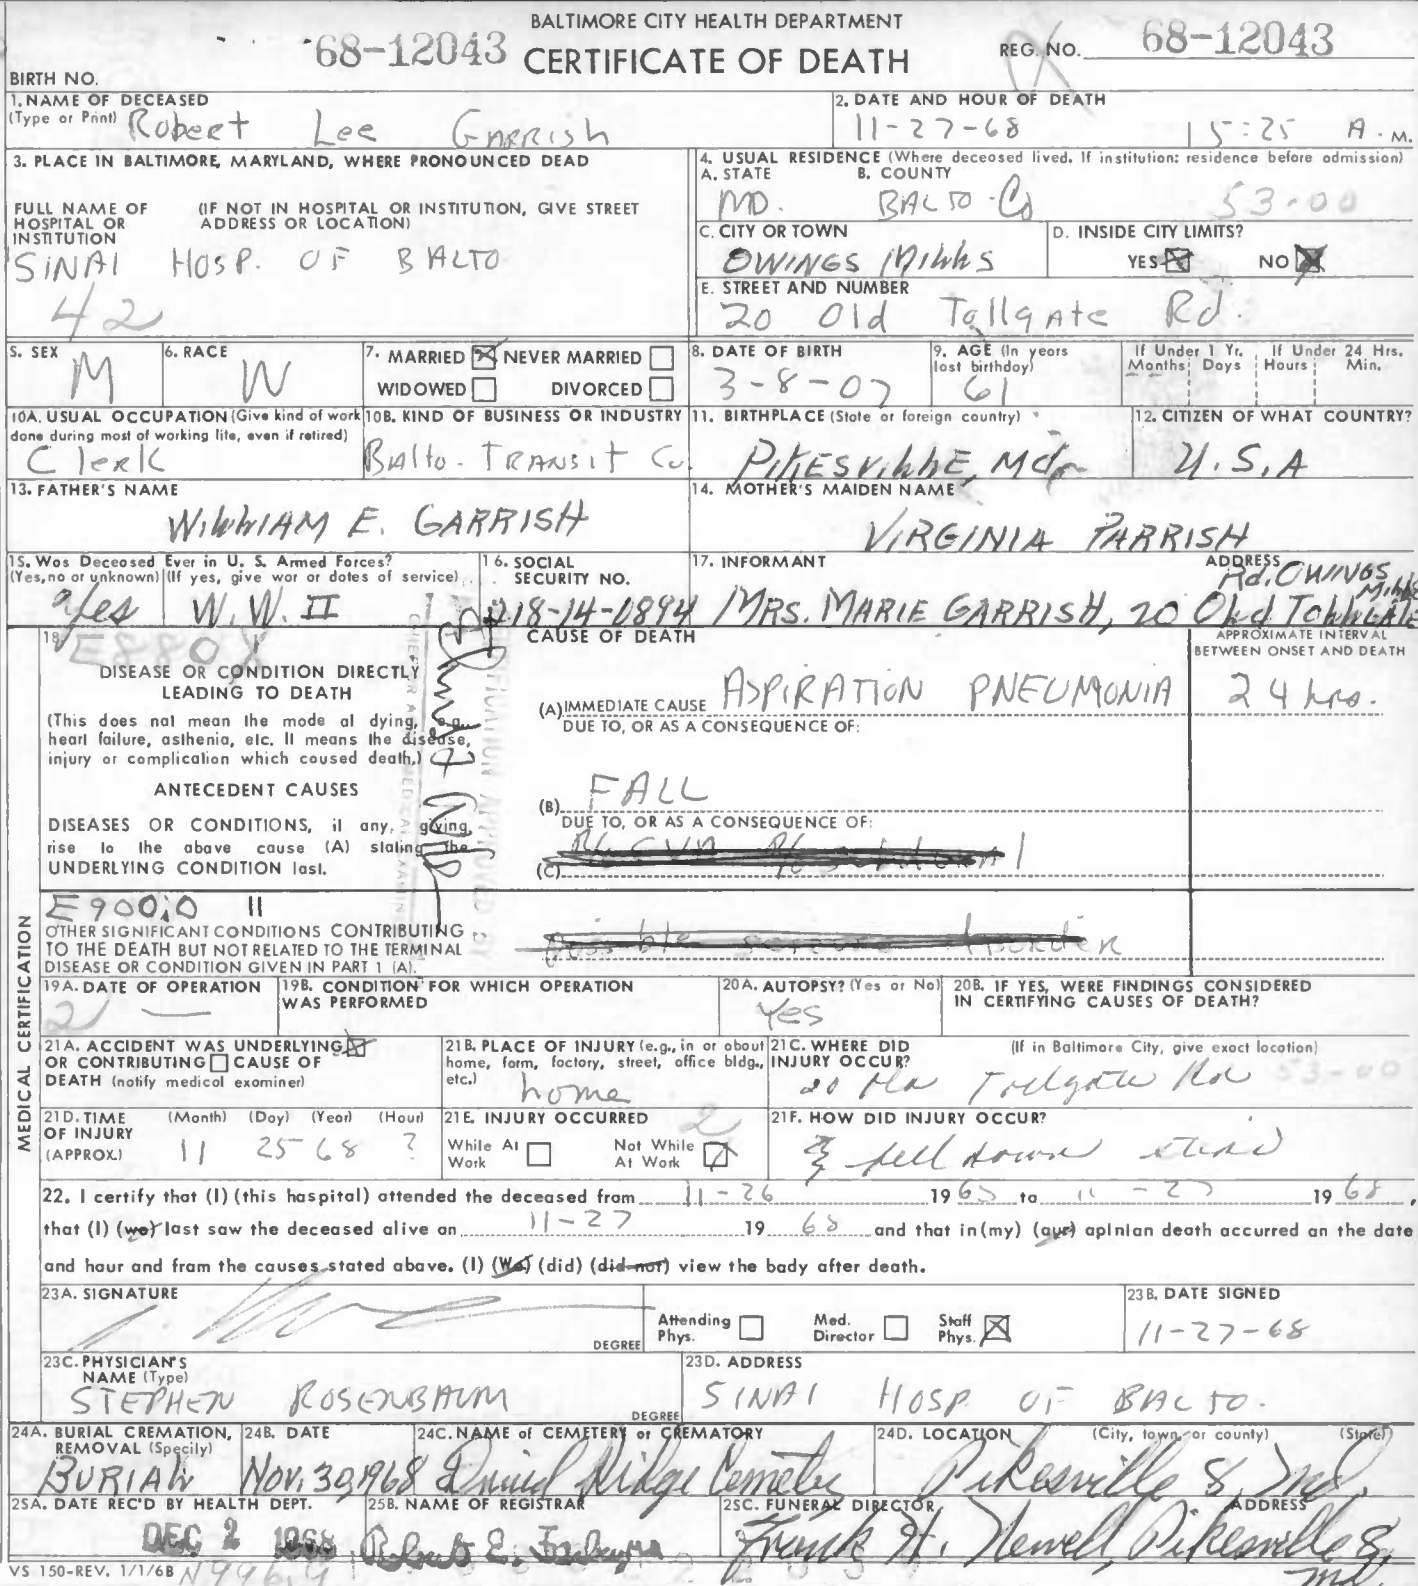 BALTIMORE CITY HEALTH DEPARTMENT
68-12043 CERTIFICATE OF DEATH REG. NO. 68-12043
BIRTH NO.
1. NAME OF DECEASED
(Type or Print) Robert Lee Garrish
2. DATE AND HOUR OF DEATH
11-27-68 15:25 A.M.
3. PLACE IN BALTIMORE, MARYLAND, WHERE PRONOUNCED DEAD
FULL NAME OF HOSPITAL OR INSTITUTION
(IF NOT IN HOSPITAL OR INSTITUTION, GIVE STREET ADDRESS OR LOCATION)
SINAI HOSP. OF BALTO
42
4. USUAL RESIDENCE (Where deceased lived. If institution: residence before admission)
A. STATE B. COUNTY
MD. BALTO Co 53-00
C. CITY OR TOWN
OWINGS Mills
D. INSIDE CITY LIMITS?
YES NO
E. STREET AND NUMBER
20 Old Tollgate Rd.
5. SEX
M
6. RACE
W
7. MARRIED NEVER MARRIED
WIDOWED DIVORCED
8. DATE OF BIRTH
3-8-07
9. AGE (In years last birthday)
61
If Under 1 Yr. Months Days
If Under 24 Hrs. Hours Min.
10A. USUAL OCCUPATION (Give kind of work done during most of working life, even if retired)
Clerk
10B. KIND OF BUSINESS OR INDUSTRY
Balto. TRANSIT Co.
11. BIRTHPLACE (State or foreign country)
PIKESVILLE, Md.
12. CITIZEN OF WHAT COUNTRY?
U.S.A
13. FATHER'S NAME
WILLIAM E. GARRISH
14. MOTHER'S MAIDEN NAME
VIRGINIA PARRISH
15. Was Deceased Ever in U. S. Armed Forces?
(Yes, no or unknown) (If yes, give war or dates of service)
Yes W.W. II
16. SOCIAL SECURITY NO.
218-14-0894
17. INFORMANT ADDRESS
MRS. MARIE GARRISH, 20 Old Tollgate Rd. OWINGS Mills
MEDICAL CERTIFICATION
18. E880X I
DISEASE OR CONDITION DIRECTLY LEADING TO DEATH
(This does not mean the mode of dying, e.g., heart failure, asthenia, etc. It means the disease, injury or complication which caused death.)
ANTECEDENT CAUSES
DISEASES OR CONDITIONS, if any, giving rise to the above cause (A) stating the UNDERLYING CONDITION last.
CAUSE OF DEATH
APPROXIMATE INTERVAL BETWEEN ONSET AND DEATH
(A) IMMEDIATE CAUSE ASPIRATION PNEUMONIA 24 hrs.
DUE TO, OR AS A CONSEQUENCE OF:
(B) FALL
DUE TO, OR AS A CONSEQUENCE OF:
(C)
E900.0 II
OTHER SIGNIFICANT CONDITIONS CONTRIBUTING TO THE DEATH BUT NOT RELATED TO THE TERMINAL DISEASE OR CONDITION GIVEN IN PART 1 (A).
19A. DATE OF OPERATION
2 —
19B. CONDITION FOR WHICH OPERATION WAS PERFORMED
20A. AUTOPSY? (Yes or No)
Yes
20B. IF YES, WERE FINDINGS CONSIDERED IN CERTIFYING CAUSES OF DEATH?
21A. ACCIDENT WAS UNDERLYING OR CONTRIBUTING CAUSE OF DEATH (notify medical examiner)
21B. PLACE OF INJURY (e.g., in or about home, farm, factory, street, office bldg., etc.)
home
21C. WHERE DID INJURY OCCUR? (If in Baltimore City, give exact location)
20 Old Tollgate Rd 53-00
21D. TIME OF INJURY (APPROX.) (Month) (Day) (Year) (Hour)
11 25 68 ?
21E. INJURY OCCURRED 2
While At Work Not While At Work
21F. HOW DID INJURY OCCUR?
fell down stairs
22. I certify that (I) (this hospital) attended the deceased from 11-26 1968 to 11-27 1968,
that (I) (we) last saw the deceased alive on 11-27 1968 and that in (my) (our) opinion death occurred on the date
and hour and from the causes stated above. (I) (We) (did) (did not) view the body after death.
23A. SIGNATURE
DEGREE
Attending Phys. Med. Director Staff Phys.
23B. DATE SIGNED
11-27-68
23C. PHYSICIAN'S NAME (Type)
STEPHEN ROSENBAUM DEGREE
23D. ADDRESS
SINAI HOSP OF BALTO.
24A. BURIAL CREMATION, REMOVAL (Specify)
BURIAL
24B. DATE
Nov. 30, 1968
24C. NAME of CEMETERY or CREMATORY
Druid Ridge Cemetery
24D. LOCATION (City, town, or county) (State)
Pikesville 8, Md.
25A. DATE REC'D BY HEALTH DEPT.
DEC 2 1968
25B. NAME OF REGISTRAR
Robert E. Farber
25C. FUNERAL DIRECTOR ADDRESS
Frank H. Newell, Pikesville 8, Md.
VS 150-REV. 1/1/68 N996.9